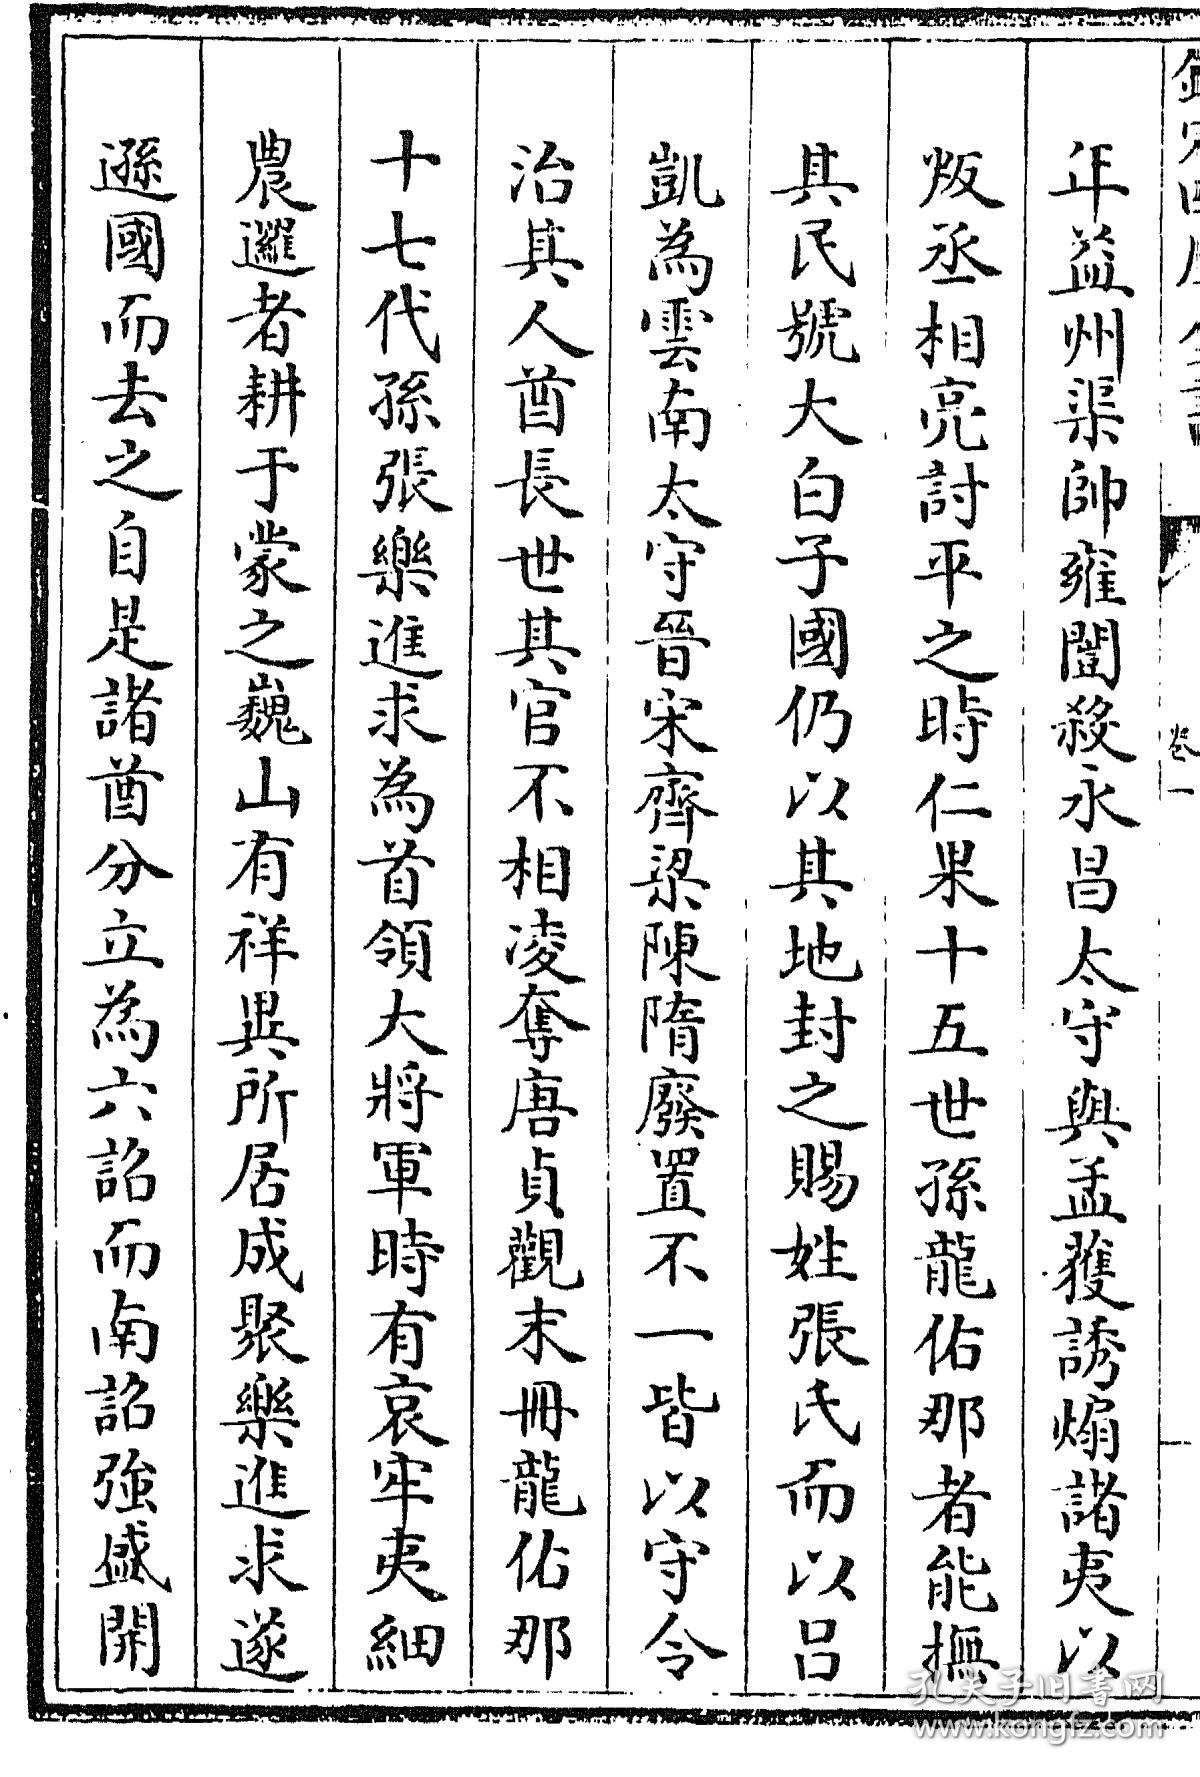 欽定四庫全書
卷一
年益州渠帥雍闓殺永昌太守與孟獲誘煽諸夷以
叛丞相亮討平之時仁果十五世孫龍佑那者能撫
其民號大白子國仍以其地封之賜姓張氏而以呂
凱為雲南太守晉宋齊梁陳隋廢置不一皆以守令
治其人酋長世其官不相凌奪唐貞觀末冊龍佑那
十七代孫張樂進求為首領大將軍時有哀牢夷細
農邏者耕于蒙之巍山有祥異所居成聚樂進求遂
遜國而去之自是諸酋分立為六詔而南詔強盛開
孔夫子旧书网
www.kongfz.com